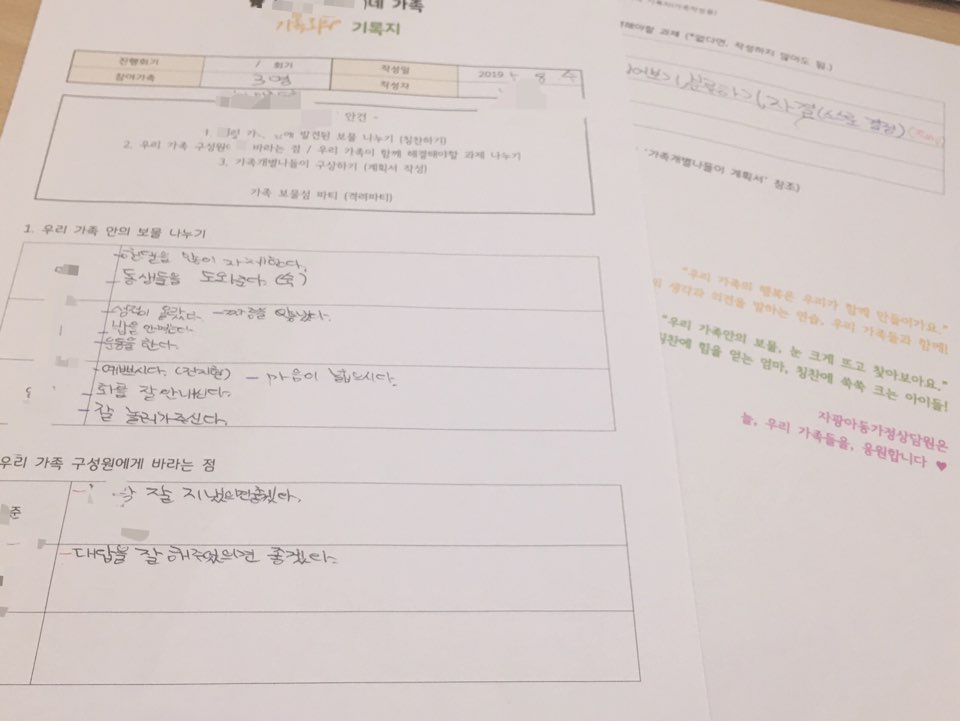 )네 가족
기록지
진행회기 / 회기 작성일 2019
참여가족 3명 작성자
안건 -
발견된 보물 나누기 (칭찬하기)
2. 우리 가족 구성원 바라는 점 / 우리 가족이 함께 해결해야할 과제 나누기
3. 가족개별나들이 구상하기 (계획서 작성)
가족 보물섬 파티 (격려파티)
1. 우리 가족 안의 보물 나누기
동생들을 도와준다. (숙)
성적이 올랐다.
밥을
운동을 한다.
예쁘시다. (전지현) - 마음이 넓으시다.
화를 잘 안내신다.
잘 놀러가주신다.
우리 가족 구성원에게 바라는 점
준
잘 지냈으면 좋겠다.
대답을 잘 해주었으면 좋겠다.
해야할 과제 (*없다면, 작성하지 않아도 됨.)
자결(스스로 결정)
'가족개별나들이 계획서' 참조)
"우리 가족의 행복은 우리가 함께 만들어가요."
생각과 의견을 말하는 연습, 우리 가족들과 함께!
"우리 가족안의 보물, 눈 크게 뜨고 찾아보아요."
칭찬에 힘을 얻는 엄마, 칭찬에 쑥쑥 크는 아이들!
자광아동가정상담원은
늘, 우리 가족들을, 응원합니다 ♥